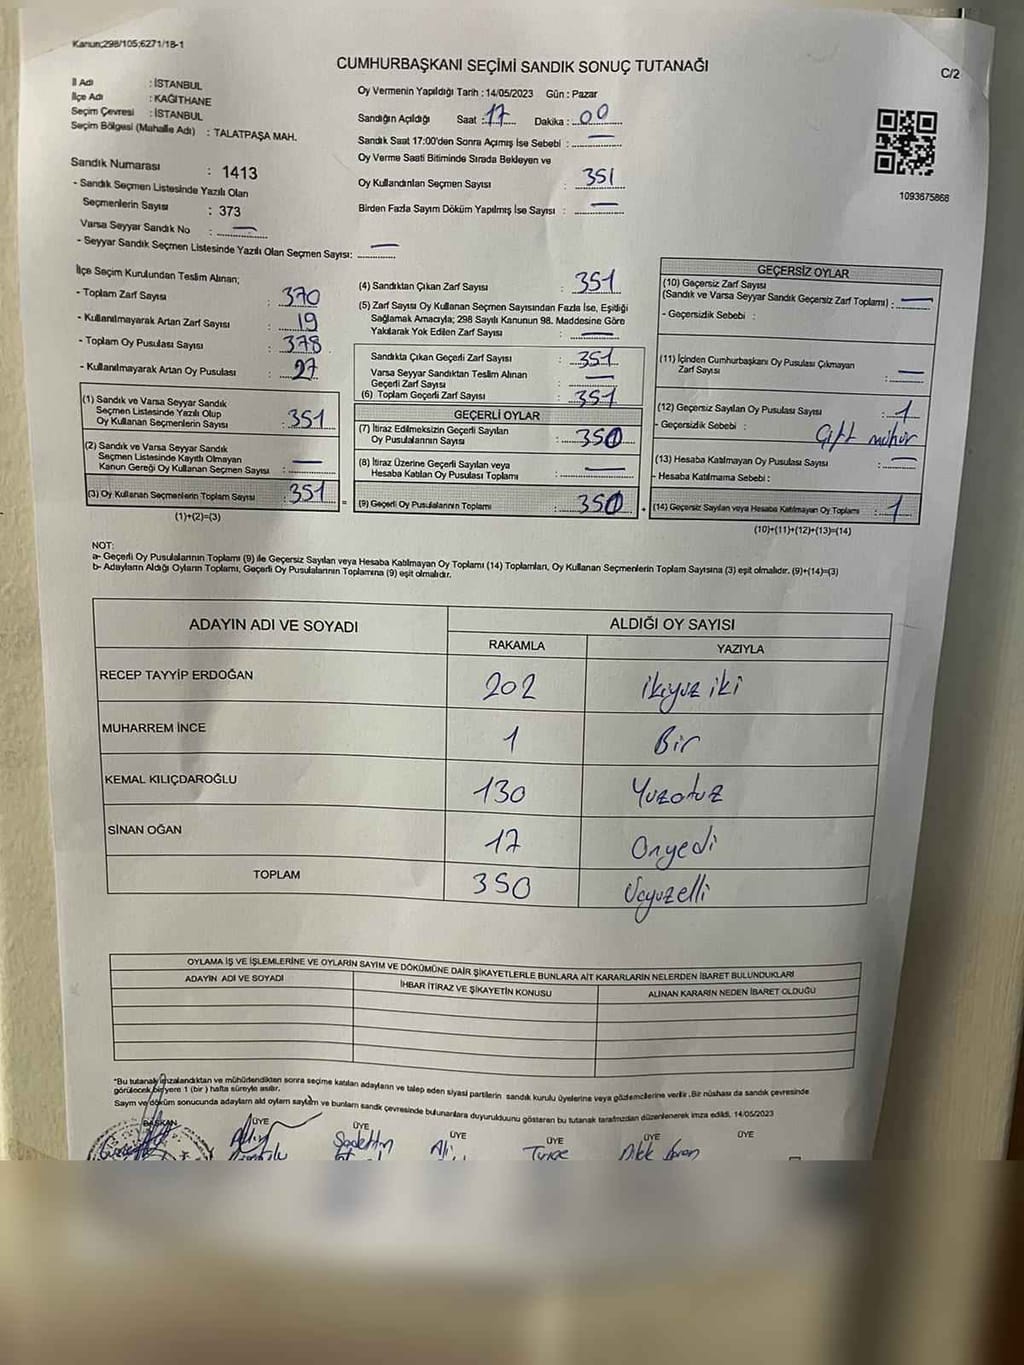 Kanun;298/105;6271/18-1
CUMHURBAŞKANI SEÇİMİ SANDIK SONUÇ TUTANAĞI
C/2
İl Adı : İSTANBUL
İlçe Adı : KAĞITHANE
Seçim Çevresi : İSTANBUL
Seçim Bölgesi (Mahalle Adı) : TALATPAŞA MAH.
Sandık Numarası : 1413
- Sandık Seçmen Listesinde Yazılı Olan
Seçmenlerin Sayısı : 373
Varsa Seyyar Sandık No : —
- Seyyar Sandık Seçmen Listesinde Yazılı Olan Seçmen Sayısı: —
Oy Vermenin Yapıldığı Tarih : 14/05/2023 Gün : Pazar
Sandığın Açıldığı Saat : 17 Dakika : 00
Sandık Saat 17:00'den Sonra Açımış İse Sebebi : —
Oy Verme Saati Bitiminde Sırada Bekleyen ve
Oy Kullandırılan Seçmen Sayısı : 351
Birden Fazla Sayım Döküm Yapılmış İse Sayısı : —
1093675866
İlçe Seçim Kurulundan Teslim Alınan;
- Toplam Zarf Sayısı : 370
- Kullanılmayarak Artan Zarf Sayısı : 19
- Toplam Oy Pusulası Sayısı : 378
- Kullanılmayarak Artan Oy Pusulası : 27
(1) Sandık ve Varsa Seyyar Sandık
Seçmen Listesinde Yazılı Olup
Oy Kullanan Seçmenlerin Sayısı : 351
(2) Sandık ve Varsa Seyyar Sandık
Seçmen Listesinde Kayıtlı Olmayan
Kanun Gereği Oy Kullanan Seçmen Sayısı : —
(3) Oy Kullanan Seçmenlerin Toplam Sayısı : 351
(1)+(2)=(3)
(4) Sandıktan Çıkan Zarf Sayısı : 351
(5) Zarf Sayısı Oy Kullanan Seçmen Sayısından Fazla İse, Eşitliği
Sağlamak Amacıyla; 298 Sayılı Kanunun 98. Maddesine Göre
Yakılarak Yok Edilen Zarf Sayısı : —
Sandıkta Çıkan Geçerli Zarf Sayısı : 351
Varsa Seyyar Sandıktan Teslim Alınan
Geçerli Zarf Sayısı : —
(6) Toplam Geçerli Zarf Sayısı : 351
GEÇERLİ OYLAR
(7) İtiraz Edilmeksizin Geçerli Sayılan
Oy Pusulalarının Sayısı : 350
(8) İtiraz Üzerine Geçerli Sayılan veya
Hesaba Katılan Oy Pusulası Toplamı : —
(9) Geçerli Oy Pusulalarının Toplamı : 350
GEÇERSİZ OYLAR
(10) Geçersiz Zarf Sayısı
(Sandık ve Varsa Seyyar Sandık Geçersiz Zarf Toplamı) : —
- Geçersizlik Sebebi :
(11) İçinden Cumhurbaşkanı Oy Pusulası Çıkmayan
Zarf Sayısı : —
(12) Geçersiz Sayılan Oy Pusulası Sayısı : 1
- Geçersizlik Sebebi : Çift mühür
(13) Hesaba Katılmayan Oy Pusulası Sayısı : —
- Hesaba Katılmama Sebebi :
(14) Geçersiz Sayılan veya Hesaba Katılmayan Oy Toplamı : 1
(10)+(11)+(12)+(13)=(14)
NOT:
a- Geçerli Oy Pusulalarının Toplamı (9) ile Geçersiz Sayılan veya Hesaba Katılmayan Oy Toplamı (14) Toplamları, Oy Kullanan Seçmenlerin Toplam Sayısına (3) eşit olmalıdır. (9)+(14)=(3)
b- Adayların Aldığı Oyların Toplamı, Geçerli Oy Pusulalarının Toplamına (9) eşit olmalıdır.
ADAYIN ADI VE SOYADI ALDIĞI OY SAYISI
RAKAMLA YAZIYLA
RECEP TAYYİP ERDOĞAN 202 ikiyuz iki
MUHARREM İNCE 1 Bir
KEMAL KILIÇDAROĞLU 130 Yuzotuz
SİNAN OĞAN 17 Onyedi
TOPLAM 350 Uçyuzelli
OYLAMA İŞ VE İŞLEMLERİNE VE OYLARIN SAYIM VE DÖKÜMÜNE DAİR ŞİKAYETLERLE BUNLARA AİT KARARLARIN NELERDEN İBARET BULUNDUKLARI
ADAYIN ADI VE SOYADI İHBAR İTİRAZ VE ŞİKAYETİN KONUSU ALINAN KARARIN NEDEN İBARET OLDUĞU
*Bu tutanak imzalandıktan ve mühürlendikten sonra seçime katılan adayların ve talep eden siyasi partilerin sandık kurulu üyelerine veya gözlemcilerine verilir. Bir nüshası da sandık çevresinde
görülecek bir yere 1 (bir) hafta süreyle asılır.
Sayım ve döküm sonucunda adayların aldı oyların sayısını ve bunların sandık çevresinde bulunanlara duyurulduunu gösteren bu tutanak tarafımızdan düzenlenerek imza edildi. 14/05/2023
BAŞKAN ÜYE ÜYE ÜYE ÜYE ÜYE ÜYE
Sadettin Ali